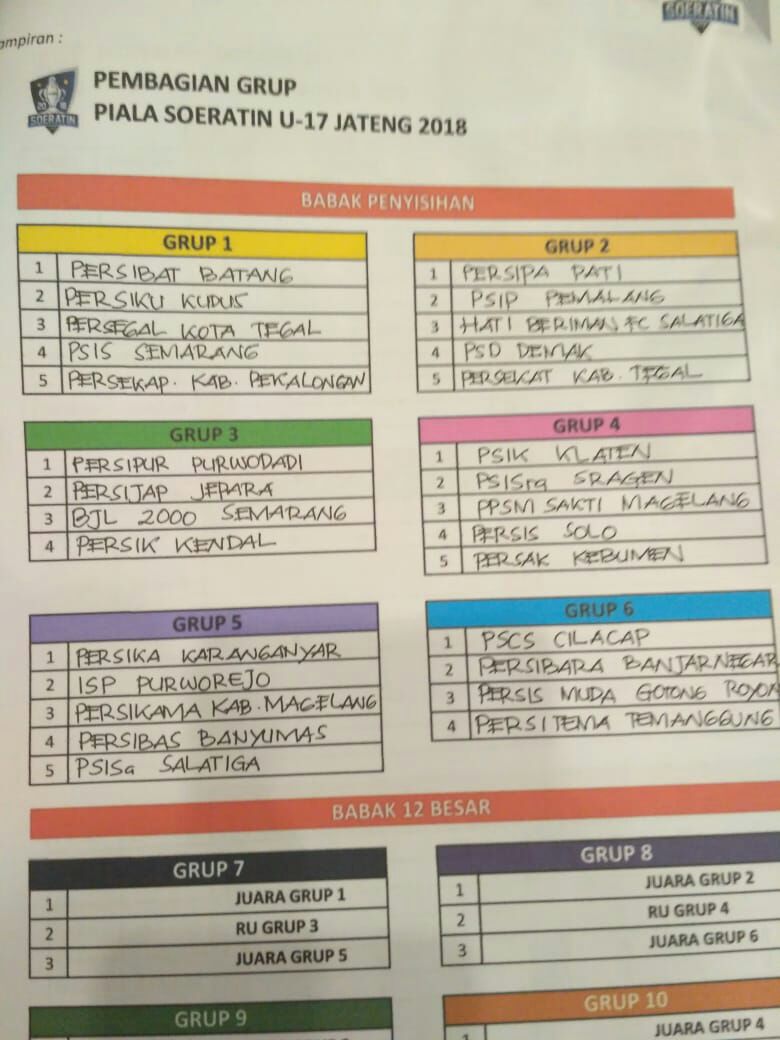 SOERATIN
ampiran :
2018
SOERATIN
PEMBAGIAN GRUP
PIALA SOERATIN U-17 JATENG 2018
BABAK PENYISIHAN
GRUP 1
1 PERSIBAT BATANG
2 PERSIKU KUDUS
3 PERSEGAL KOTA TEGAL
4 PSIS SEMARANG
5 PERSEKAP. KAB. PEKALONGAN
GRUP 2
1 PERSIPA PATI
2 PSIP PEMALANG
3 HATI BERIMAN FC SALATIGA
4 PSD DEMAK
5 PERSEKAT KAB. TEGAL
GRUP 3
1 PERSIPUR PURWODADI
2 PERSIJAP JEPARA
3 BJL 2000 SEMARANG
4 PERSIK KENDAL
GRUP 4
1 PSIK KLATEN
2 PSISra SRAGEN
3 PPSM SAKTI MAGELANG
4 PERSIS SOLO
5 PERSAK KEBUMEN
GRUP 5
1 PERSIKA KARANGANYAR
2 ISP PURWOREJO
3 PERSIKAMA KAB. MAGELANG
4 PERSIBAS BANYUMAS
5 PSISa SALATIGA
GRUP 6
1 PSCS CILACAP
2 PERSIBARA BANJARNEGAR
3 PERSIS MUDA GOTONG ROYON
4 PERSITEMA TEMANGGUNG
BABAK 12 BESAR
GRUP 7
1 JUARA GRUP 1
2 RU GRUP 3
3 JUARA GRUP 5
GRUP 8
1 JUARA GRUP 2
2 RU GRUP 4
3 JUARA GRUP 6
GRUP 9
GRUP 10
1 JUARA GRUP 4